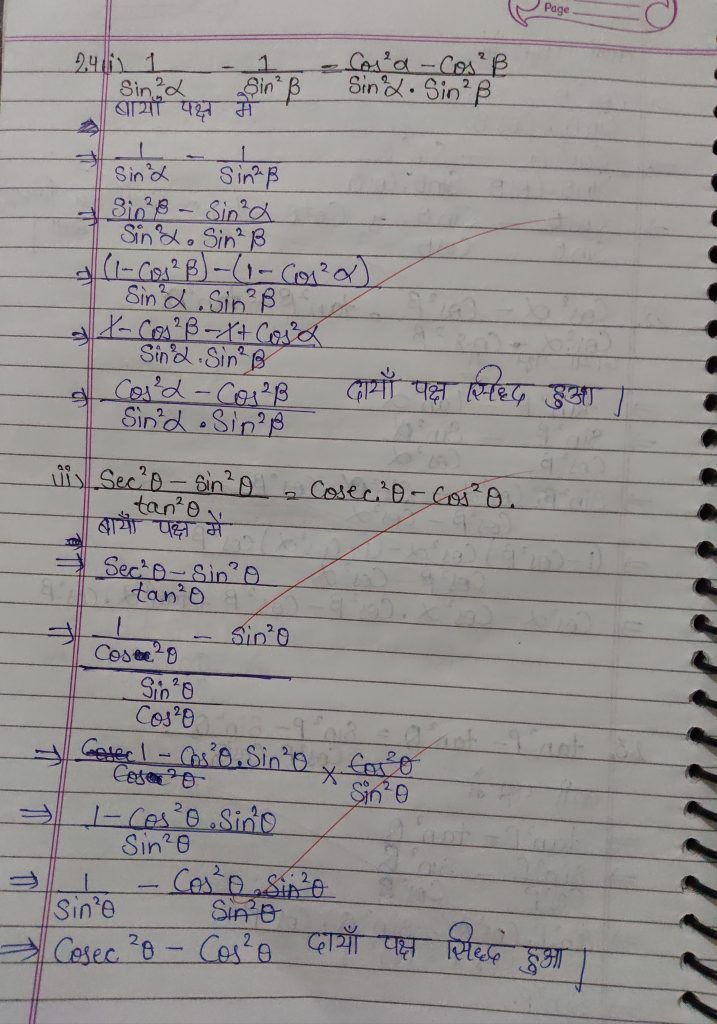 Page
24(i) 1/Sin²α - 1/Sin²β = Cos²α - Cos²β/Sin²α . Sin²β
बायाँ पक्ष में
⇒ 1/Sin²α - 1/Sin²β
⇒ Sin²β - Sin²α/Sin²α . Sin²β
⇒ (1-Cos²β)-(1-Cos²α)/Sin²α . Sin²β
⇒ 1-Cos²β-1+Cos²α/Sin²α . Sin²β
⇒ Cos²α - Cos²β/Sin²α . Sin²β दायाँ पक्ष सिध्द हुआ |
ii) Sec²θ - Sin²θ/tan²θ = Cosec.²θ - Cos²θ.
बायाँ पक्ष में
⇒ Sec²θ - Sin²θ/tan²θ
⇒ 1/Cos²θ - Sin²θ/Sin²θ/Cos²θ
⇒ 1 - Cos²θ.Sin²θ/Cos²θ × Cos²θ/Sin²θ
⇒ 1 - Cos²θ.Sin²θ/Sin²θ
⇒ 1/Sin²θ - Cos²θ.Sin²θ/Sin²θ
⇒ Cosec²θ - Cos²θ दायाँ पक्ष सिध्द हुआ |